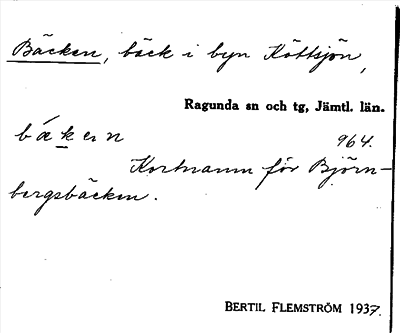 Bäcken, bäck i byn Köttsjön,
Ragunda sn och tg, Jämtl. län.
bǽken 964.
Kortnamn för Björn-
bergsbäcken.
BERTIL FLEMSTRÖM 1937.